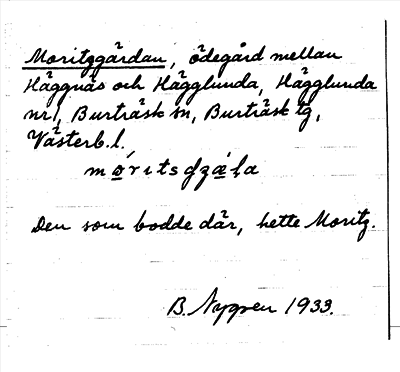 Moritzgårdan, ödegård mellan
Häggnäs och Hägglunda, Hägglunda
nr 1, Burträsk sn, Burträsk tg,
Västerb. l.
Den som bodde där, hette Moritz.
B. Nygren 1933.